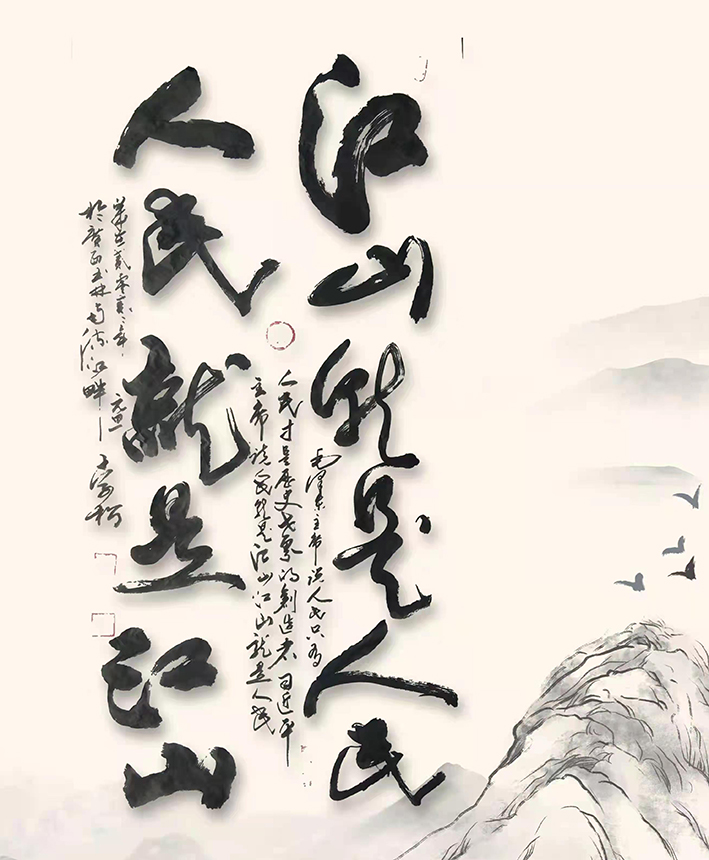 江山就是人民
毛泽东主席说人民只
人民才是歷史的創造者 习近平
主席说人民就是江山江山就是人民
人民就是江山
元旦
於廣西玉林南流江畔